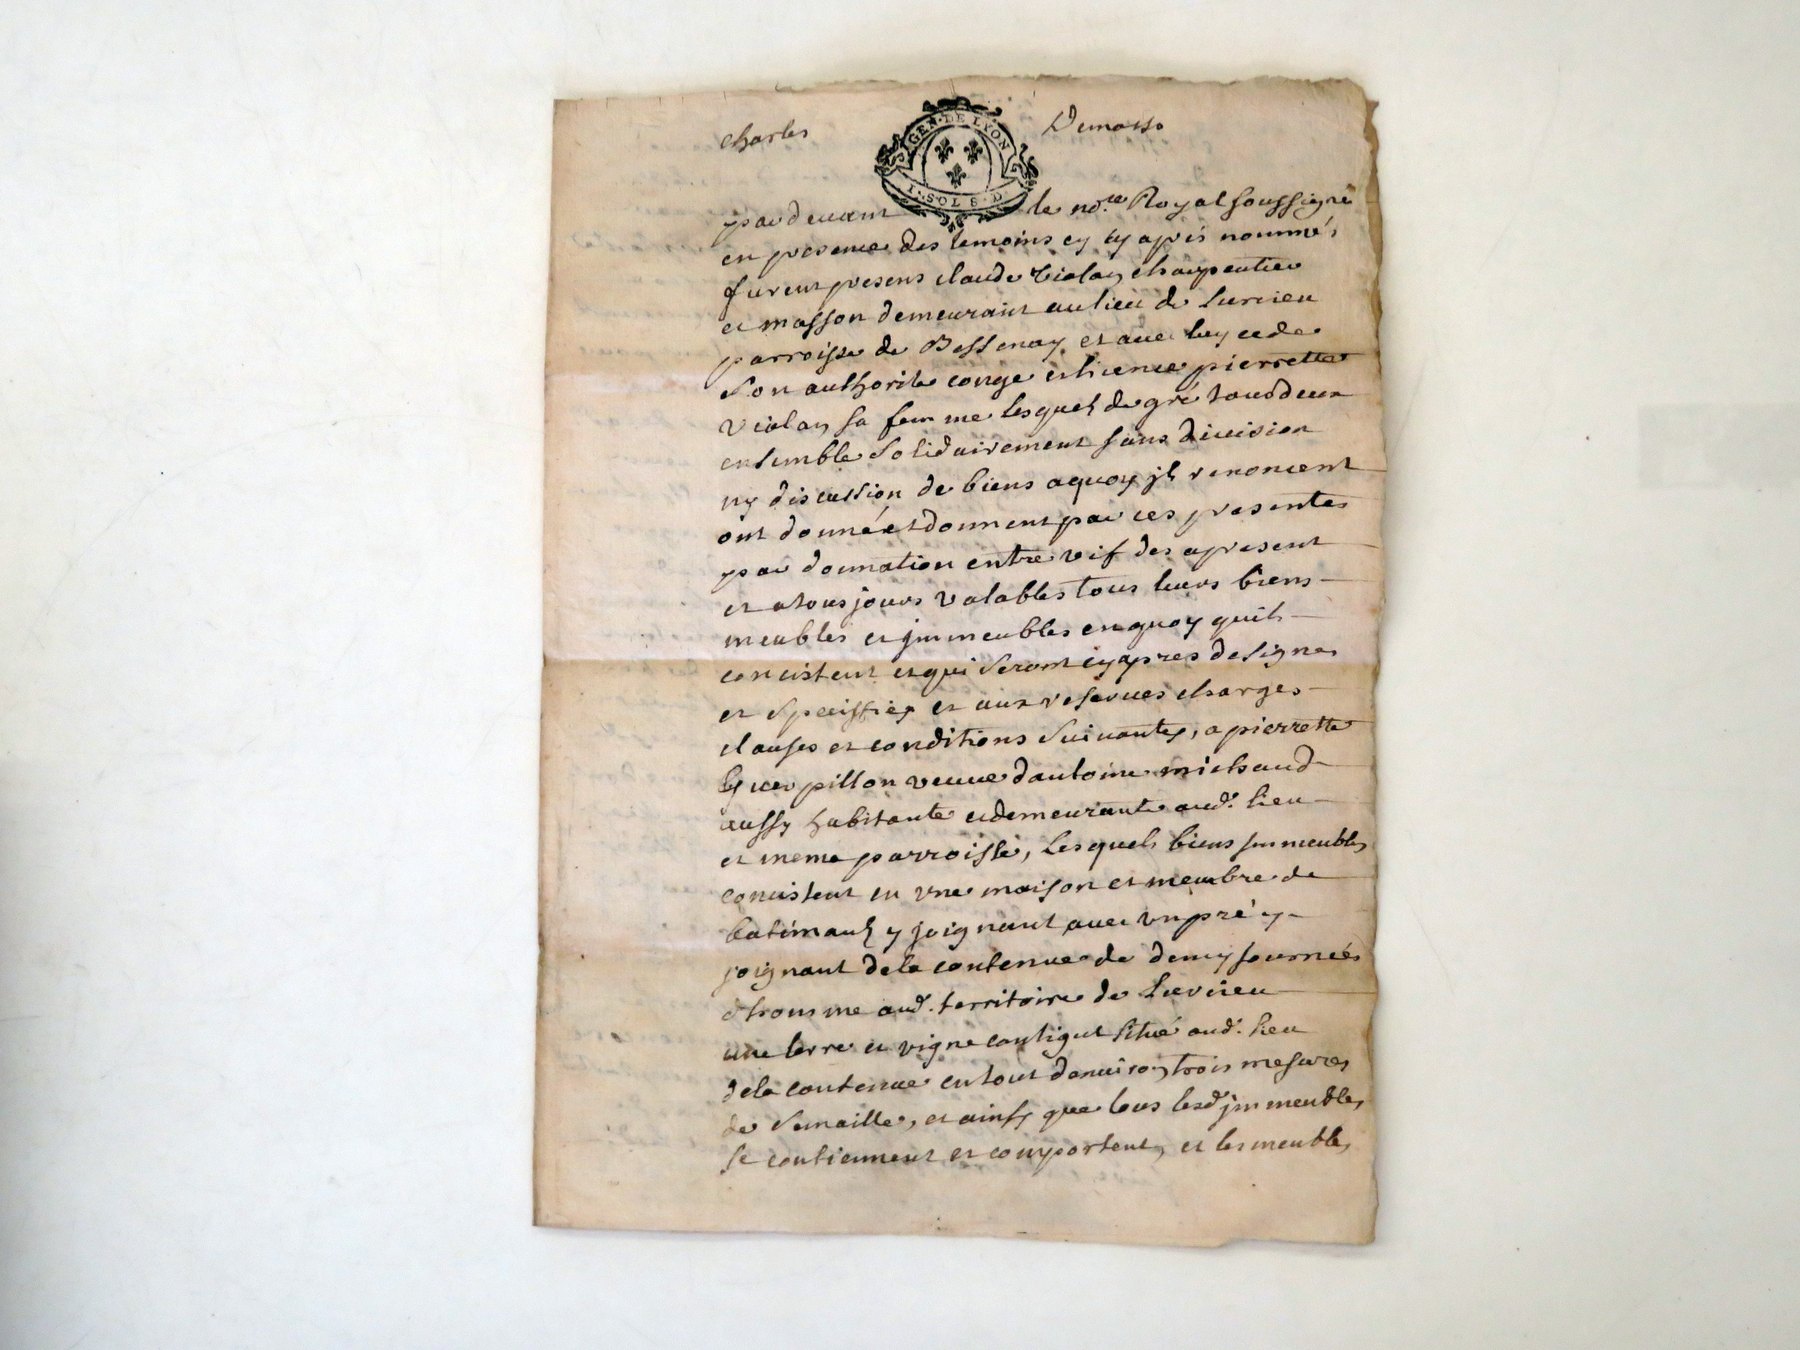 charles Demasso
GEN·DE LYON
1·SOL 8·D
pardevant le no.re Royal soussigné
en presence des temoins cy ey apris nommés
furent presens claude Violay charpentier
et masson demeurant au lieu de Lurcieu
parroisse de Bessenay et avec luy et de
son authorite conge et licence pierrette
Violay sa femme lesquels de gré tousdeux
ensemble solidairement sans division
ny discussion de biens aquoy jls renoncent
ont donné et donnent par ces presentes
par donnation entre vif des apresent
et atousjours valables tous leurs biens
meubles et jmmeubles en quoy quils
concistent et qui seront cyapres designes
et speciffies et aux reserves charges
clauses et conditions suivantes, a pierrette
pillon veuve dantoine michaud
aussy habitante et demeurante aud. lieu
et meme parroisse, Lesquels biens jmmeubles
concistent en vne maison et membre de
batimants y joignant avec vn pré y
joignant dela contenue de demy journées
dhomme aud. territoire de Lurcieu
une terre et vigne contigut situé aud. lieu
dela contenue en tout denviron trois mesures
de semaille, et ainsy que tous lesd. jmmeubles
se contiennent et comportent, et les meubles